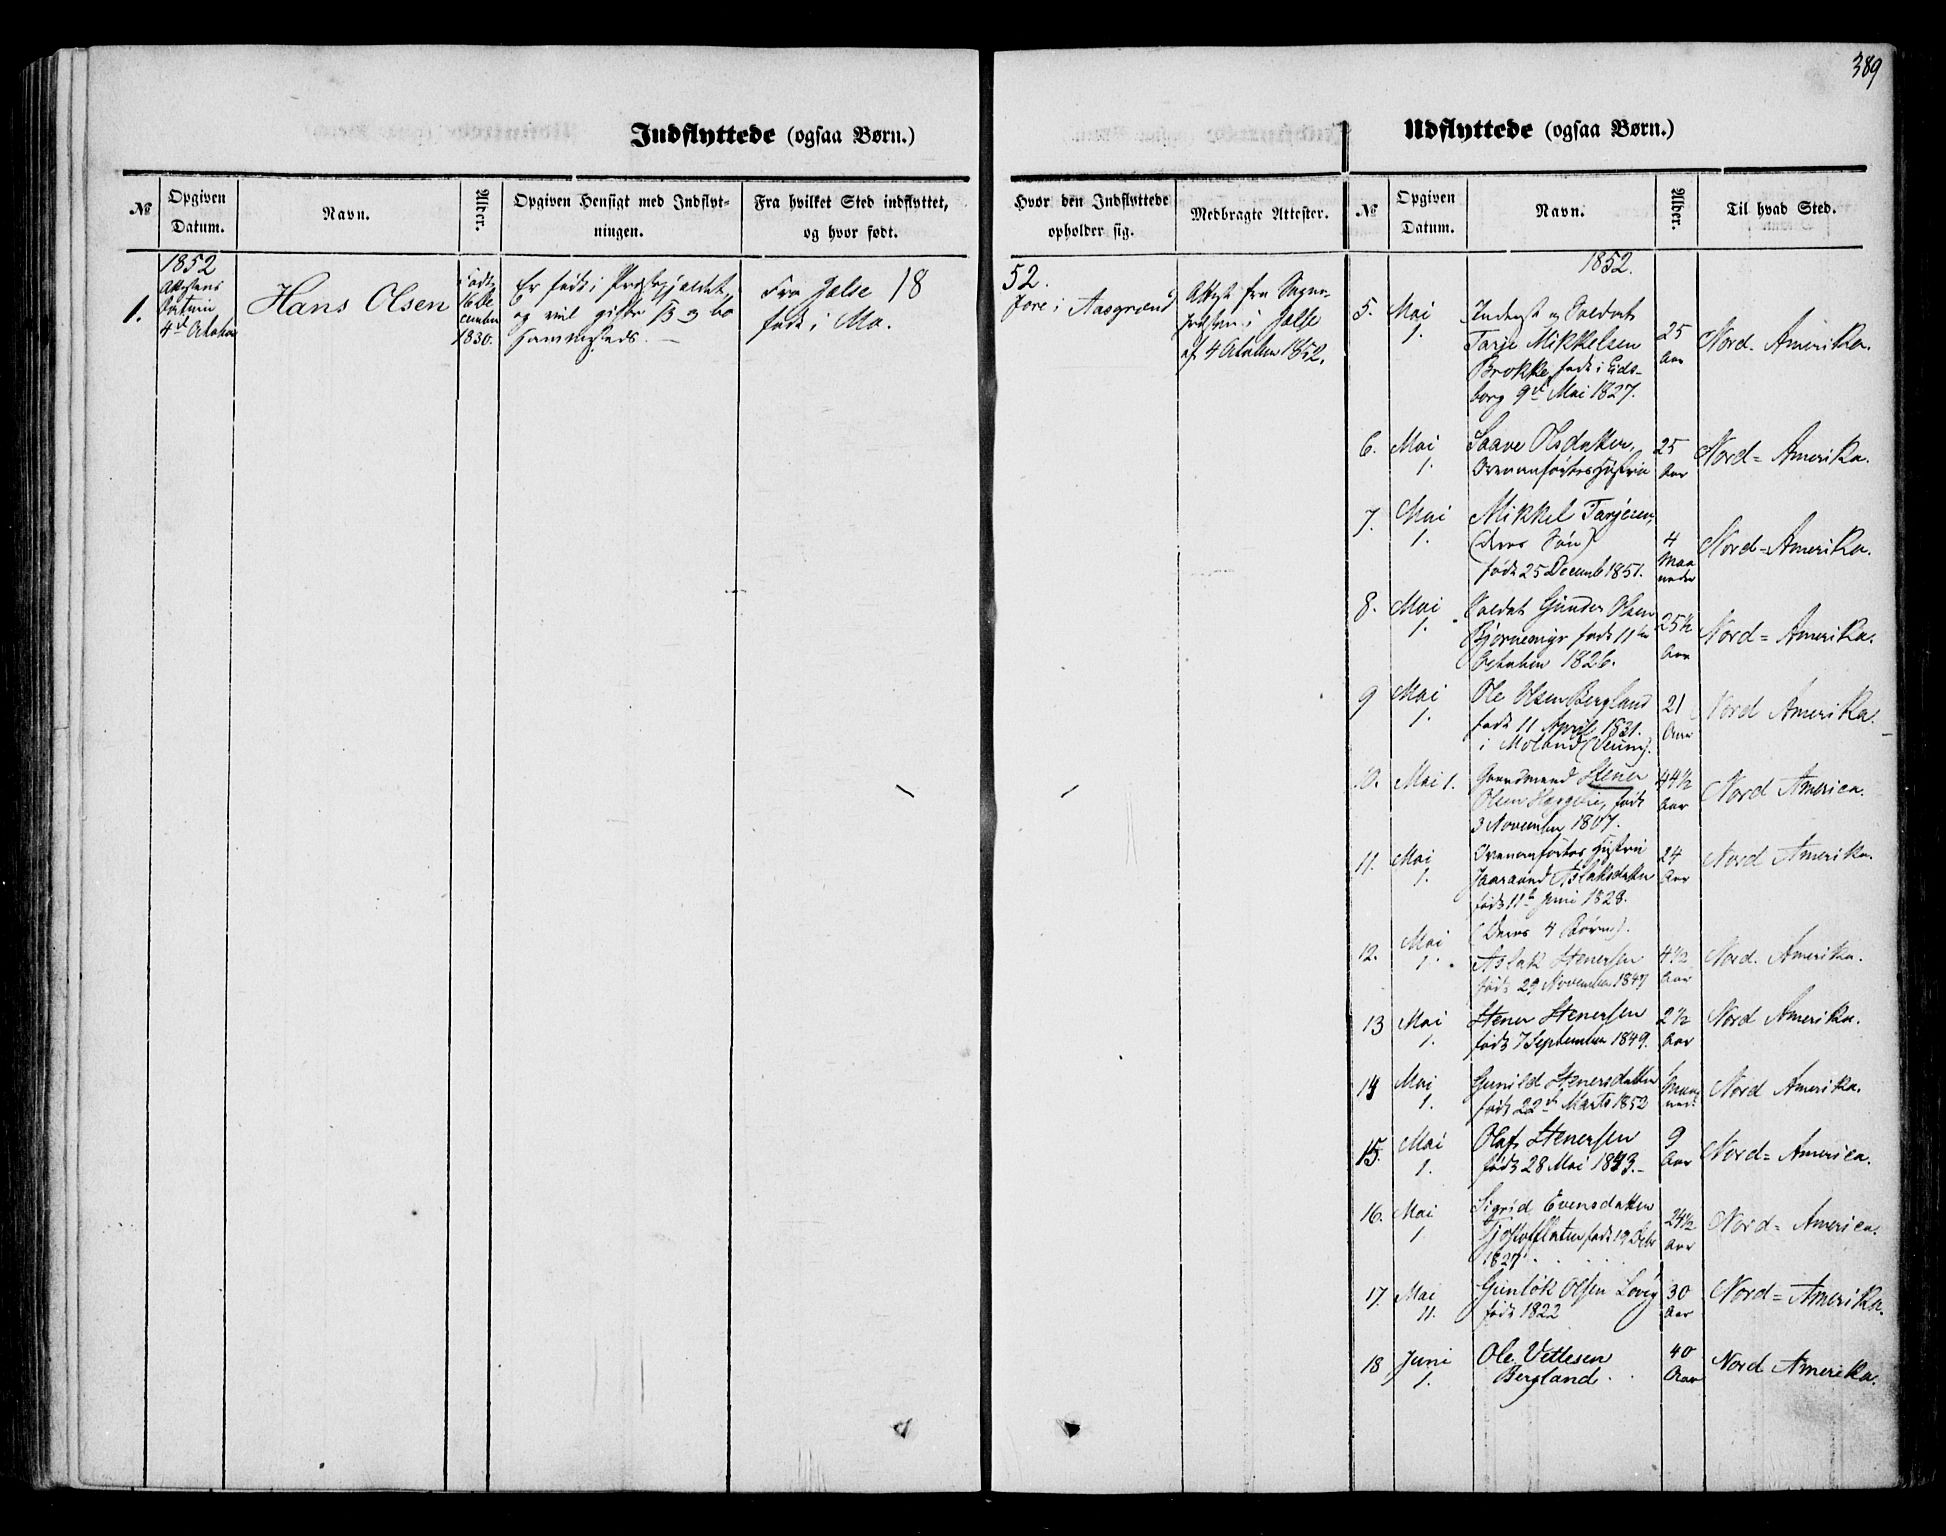 389
Indflyttede (ogsaa Børn.)
№
Opgiven
Datum.
Navn.
Alder.
Opgiven Hensigt med Indflyt-
ningen.
Fra hvilket Sted indflyttet,
og hvor født.
Hvor den Indflyttede
opholder sig.
Medbragte Attester.
1852
1.
Attestens
Datum
4de October
Hans Olsen
Født
16 De
cember
1830.
Er født i Præstegjældet,
og vil gifte
sammesteds.
Fra
født i Mo.
18
52.
i Aasgrend
Attest fra Sogne-
præsten i
af 4 October 1852.
Udflyttede (ogsaa Børn.)
№
Opgiven
Datum.
Navn.
Alder.
Til hvad Sted.
1852.
5. Mai
1.
Inderst og Soldat
Tarje Mikkelsen
Brokke, født i Eids-
borg 9de Mai 1827.
25
Aar
Nord. Amerika.
6. Mai
1.
Saave Olsdatter,
Ovenanførtes Hustru
25
Aar
Nord= Amerika.
7. Mai
1.
Mikkel Tarjesen,
(deres Søn)
født 25 Decemb 1851.
4
Maa
neder
Nord=Amerika.
8. Mai
1.
Soldat Gunder Olsen
Bjørnemyr født 11te
October 1826.
25½
Aar
Nord= Amerika.
9 Mai
1.
Ole Olsen Bergland
født 11 April 1831.
i Moland (Veum).
21
Aar
Nord Amerika.
10. Mai 1.
Gaardmand Stener
Olsen født
3 November 1807.
44½
Aar
Nord America.
11. Mai
1.
Ovenanførtes Hustru
Jaraand Aslaksdatter
født 11te Juni 1828.
24
Aar
Nord Amerika.
(Deres 4 Børn).
12. Mai
1.
Aslak Stenersen
født 29 November 1847
4½
Aar
Nord. Amerika.
13 Mai
1.
Stener Stenersen
født 7 September 1849.
2½
Aar
Nord Amerika.
14 Mai
1.
Gunild Stenersdatter
født 22de Marts 1852
1
Maa
ned.
Nord Amerika.
15. Mai
1.
Olaf Stenersen
født 28 Mai 1843.-
9
Aar
Nord= America.
16. Mai
1
Sigrid Evensdatter
født 19 Debr
1827
24½
Aar
Nord= America.
17. Mai
11.
Gunlök Olsen
født 1822
30
Aar
Nord= Amerika.
18 Juni
1.
Ole Vetlesen
Bergland.
40
Aar
Nord Amerika.